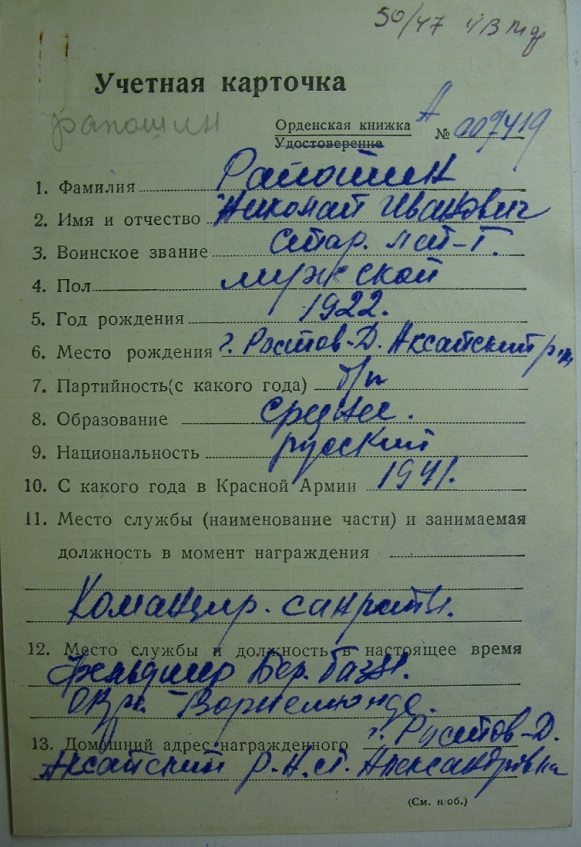 50/47
Учетная карточка
рапошин
Орденская книжка А
Удостоверение № 009419
1. Фамилия Рапошин
2. Имя и отчество Николай Иванович
3. Воинское звание Стар. лей-т.
4. Пол мужской
5. Год рождения 1922.
6. Место рождения г. Ростов-Д. Аксайский р-н
7. Партийность (с какого года) б/п
8. Образование среднее.
9. Национальность русский
10. С какого года в Красной Армии 1941.
11. Место службы (наименование части) и занимаемая
должность в момент награждения
Командир. санроты.
12. Место службы и должность в настоящее время
Фельдшер Бер. базы.
Варнемюнде.
13. Домашний адрес награжденного г. Ростов-Д.
Аксайский р. Александровка
(См. н/об.)